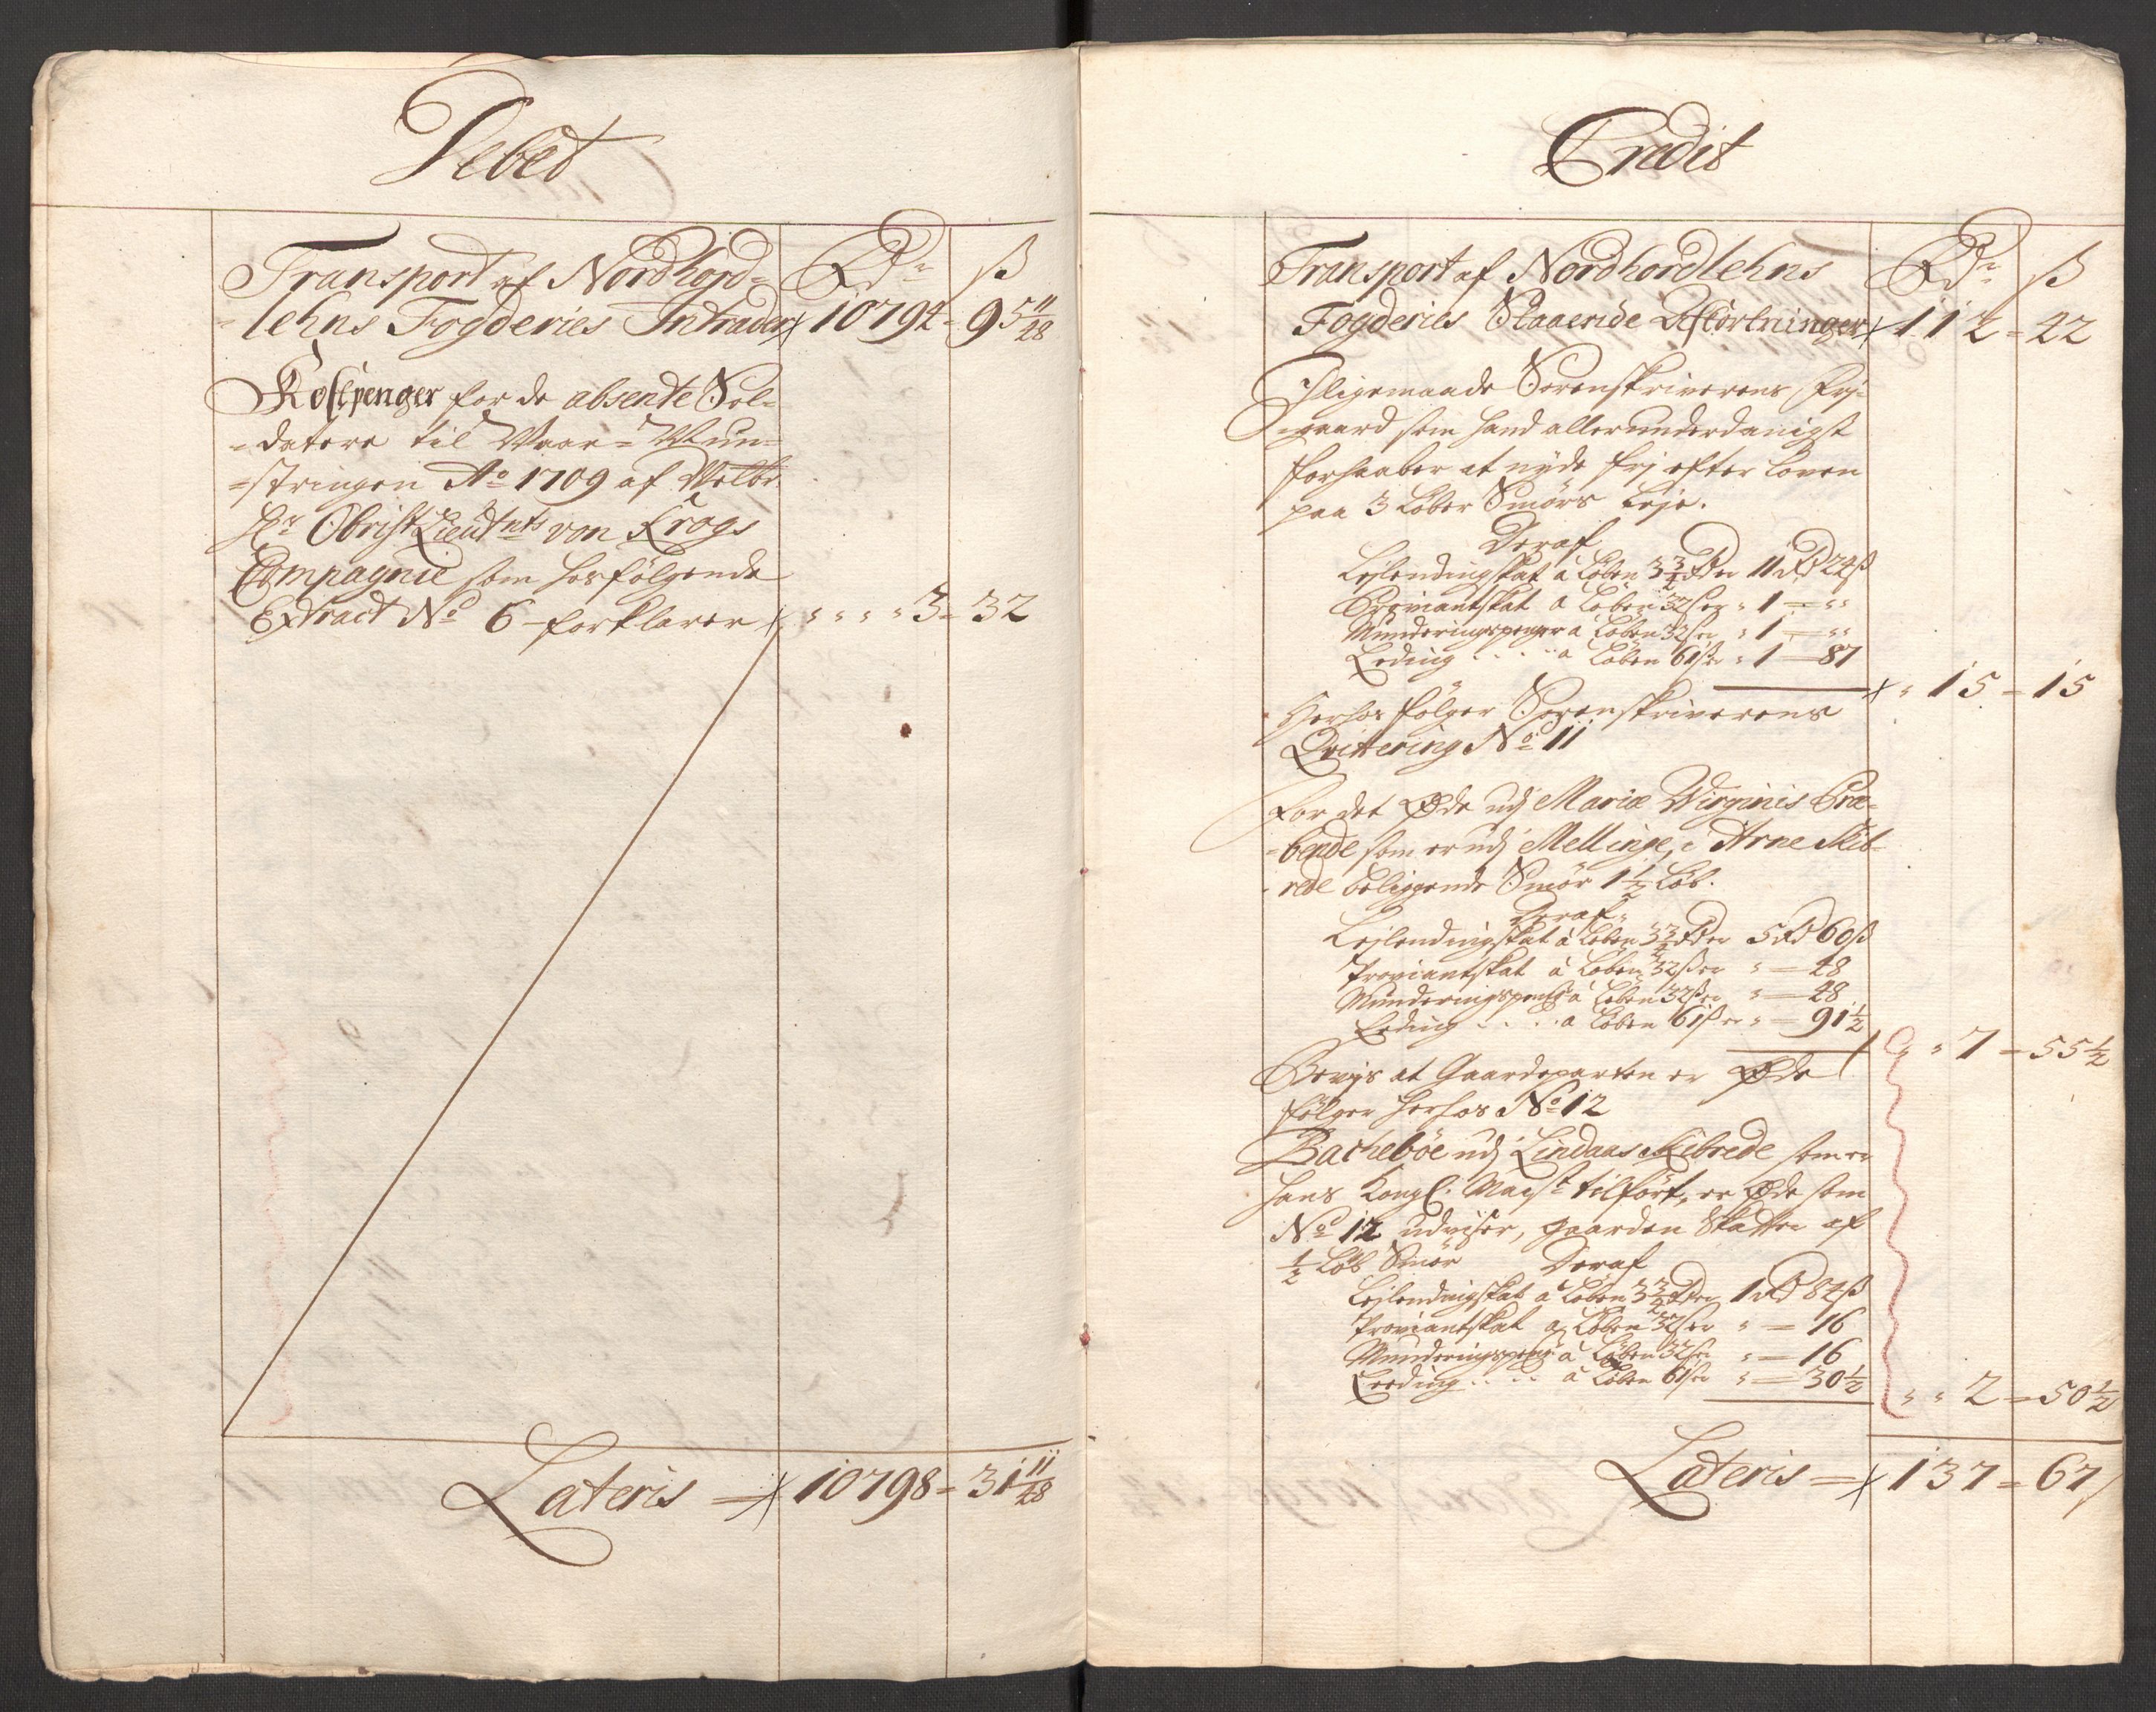 Debet
Rdr ß
Transport af Nordhord=
=lehns Fogderies Intrader 10794 = 95 11/48
Kostpenger for de absente Sol=
=datere til Vaar= Mun=
=stringen Ao 1709 af Velbr.
Hr Obrist Lieutnts von Krogs
Compagnie som hosfølgende
Extract No 6 forklarer " " " " 3 = 32
Lateris = 10798 = 31 11/48
Credit
Rdr ß
Transport af Nordhordlehns
Fogderies Staaende Afkortninger 112 = 42
Iligemaade Sorenskriverens Frj=
=gaard som hand allerunderdanigst
forhaaber at nyde frj efter Loven
paa 3 Løber Smørs Leje.
Deraf
Lejlendingskat a Løben 3 3/4 Rdr 11 Rd 24 ß
Proviantskat a Løben 32 ß er " 1 = " "
Munderingspenger a Løben 32 ß er " 1 = " "
Leding . . . . a Løben 61 ß er " 1 = 87
" 15 = 15
Herhos følger Sorenskriverens
Qvittering No 11
For det Øde udj Mariæ Virginis Præ=
=bende som er udj Mellinge, i Arne Skib=
=rede beliggende Smør 1 1/2 Løb.
Deraf
Lejlendingskat a Løben 3 3/4 Rdr 5 Rd 60 ß
Proviantskat a Løben 32 ß er " = 48
Munderingspeng a Løben 32 ß er " = 48
Leding . . . . a Løben 61 ß er " = 91 1/2
" " 7 = 55 1/2
Bevjs at Gaardeparten er Øde
følger herhos No 12
Bachebøe udj Lindaas Skibrede som er
hans Kongl. Mayst tilført, er Øde som
No 12 udviser, gaarden skatter af
1/2 Løb Smør Deraf
Lejlendingskat a Løben 3 3/4 Rdr 1 Rd 84 ß
Proviantskat a Løben 32 ß er " = 16
Munderingspeng a Løben 32 ß er " = 16
Leeding . . . . a Løben 61 ß er " = 30 1/2
" " 2 = 50 1/2
Lateris = 137 = 67